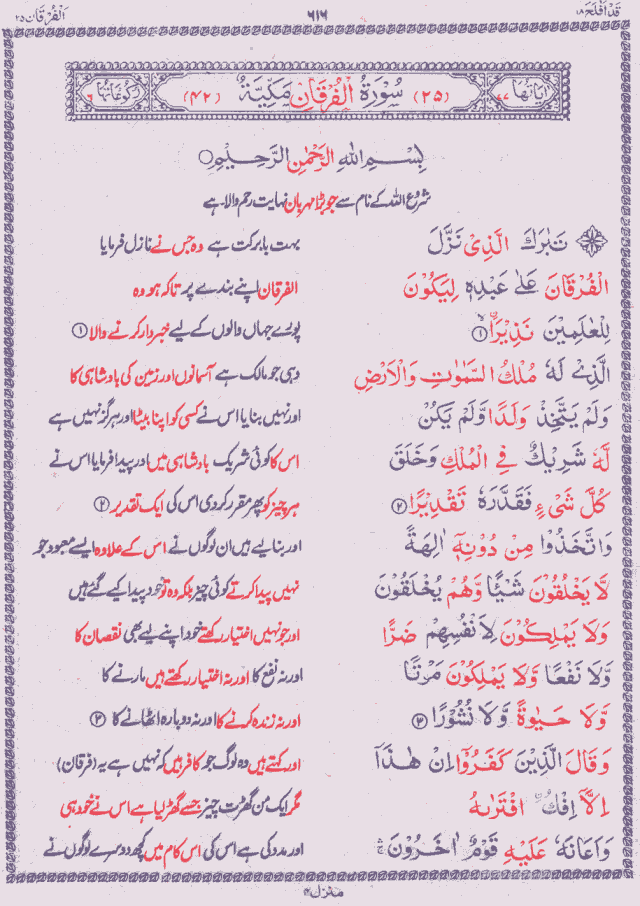 قَدْ اَفْلَحَ ١٨ ٦١٦ اَلْفُرْقَان ٢٥
اٰيَاتُهَا ٧٧ (٢٥) سُوْرَةُ الْفُرْقَانِ مَكِّيَّةٌ (٤٢) رُكُوْعَاتُهَا ٦
بِسْمِ اللهِ الرَّحْمٰنِ الرَّحِيْمِ
شروع اللہ کے نام سے جو بڑا مہربان نہایت رحم والا ہے
تَبٰرَكَ الَّذِىْ نَزَّلَ بہت بابرکت ہے وہ جس نے نازل فرمایا
الْفُرْقَانَ عَلٰى عَبْدِهٖ لِيَكُوْنَ الفرقان اپنے بندے پر تاکہ ہو وہ
لِلْعٰلَمِيْنَ نَذِيْرَاۨ ۙ ① پورے جہاں والوں کے لیے خبردار کرنے والا ①
الَّذِىْ لَهٗ مُلْكُ السَّمٰوٰتِ وَالْاَرْضِ وہی جو مالک ہے آسمانوں اور زمین کی بادشاہی کا
وَلَمْ يَتَّخِذْ وَلَدًا وَّلَمْ يَكُنْ اور نہیں بنایا اس نے کسی کو اپنا بیٹا اور ہرگز نہیں ہے
لَّهٗ شَرِيْكٌ فِى الْمُلْكِ وَخَلَقَ اس کا کوئی شریک بادشاہی میں اور پیدا فرمایا اس نے
كُلَّ شَىْءٍ فَقَدَّرَهٗ تَقْدِيْرًا ② ہر چیز کو پھر مقرر کردی اس کی ایک تقدیر ②
وَاتَّخَذُوْا مِنْ دُوْنِهٖۤ اٰلِهَةً اور بنا لیے ہیں ان لوگوں نے اس کے علاوہ ایسے معبود جو
لَّا يَخْلُقُوْنَ شَيْـًٔا وَّهُمْ يُخْلَقُوْنَ نہیں پیدا کرتے کوئی چیز بلکہ وہ تو خود پیدا کیے گئے ہیں
وَلَا يَمْلِكُوْنَ لِاَنْفُسِهِمْ ضَرًّا اور جو نہیں اختیار رکھتے خود اپنے لیے بھی نقصان کا
وَّلَا نَفْعًا وَّلَا يَمْلِكُوْنَ مَوْتًا اور نہ نفع کا اور نہ اختیار رکھتے ہیں مارنے کا
وَّلَا حَيٰوةً وَّلَا نُشُوْرًا ③ اور نہ زندہ کرنے کا اور نہ دوبارہ اٹھانے کا ③
وَقَالَ الَّذِيْنَ كَفَرُوْۤا اِنْ هٰذَاۤ اور کہتے ہیں وہ لوگ جو کافر ہیں کہ نہیں ہے یہ (فرقان)
اِلَّاۤ اِفْكُ ۨ افْتَرٰىهُ مگر ایک من گھڑت چیز جسے گھڑ لیا ہے اس نے خود ہی
وَاَعَانَهٗ عَلَيْهِ قَوْمٌ اٰخَرُوْنَ ۛۚ اور مدد کی ہے اس کی اس کام میں کچھ دوسرے لوگوں نے
منزل ٤